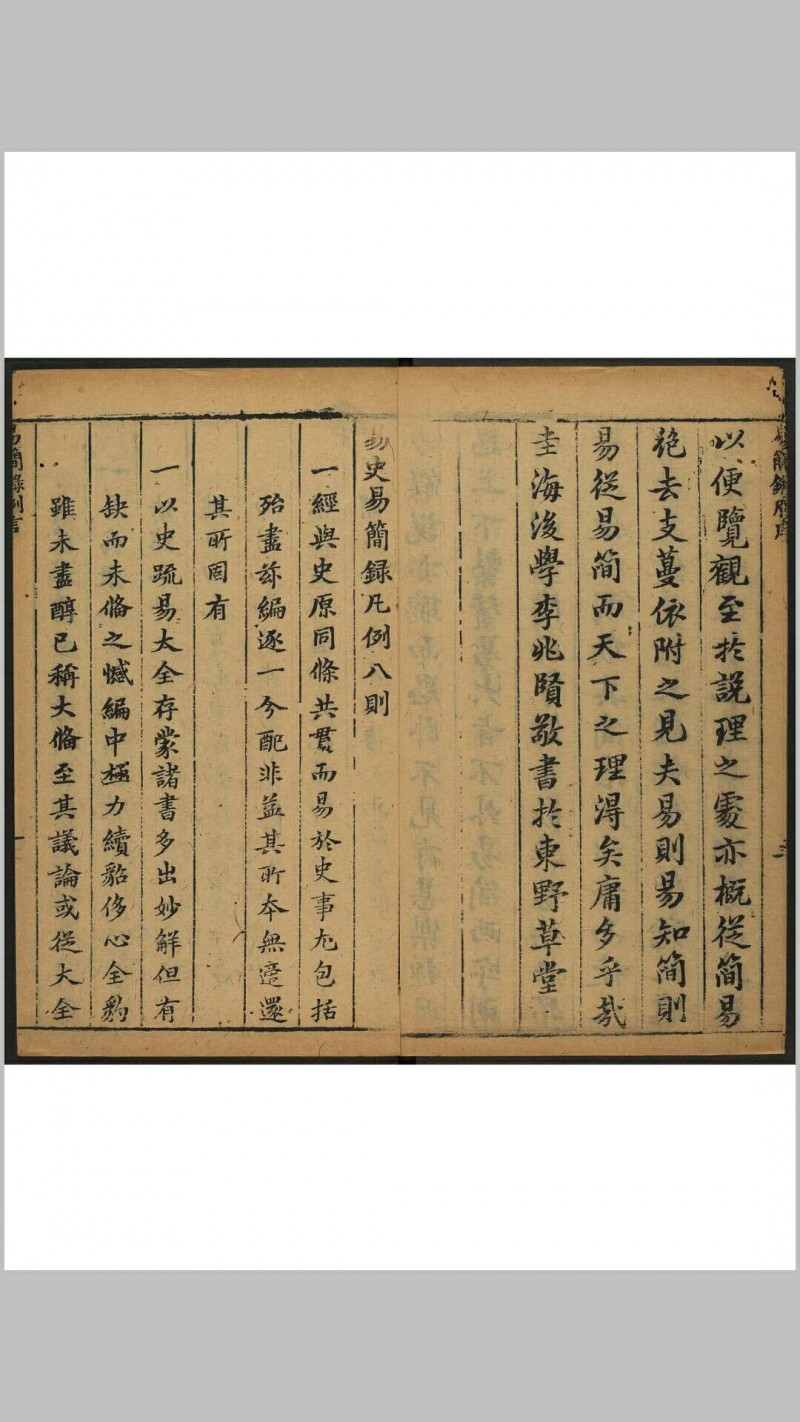 以便覽觀至於説理之處亦概從簡易
絶去支蔓依附之見夫易則易知簡則
易從易簡而天下之理得矣庸多乎哉
圭海後學李兆賢敬書於東野草堂
易史易簡録凡例八則
一經與史原同條共貫而易於史事尤包括
殆盡兹編逐一分配非益其所本無寔還
其所固有
一以史疏易大全存蒙諸書多出妙解但有
缺而未備之憾編中極力續貂侈心全豹
雖未盡醇已稱大備至其議論或從大全